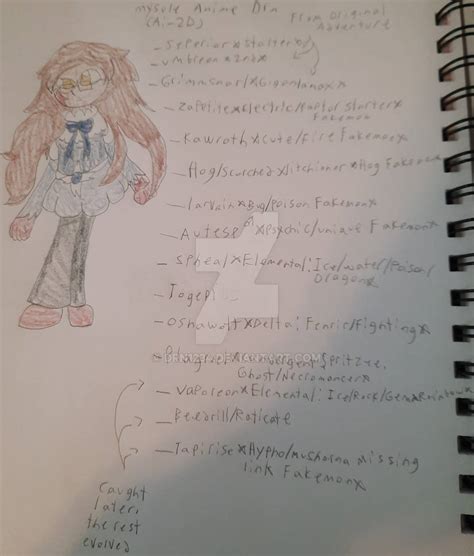 mysule Anime Dia
(Ai-2D)
From Original
Adventure
- Serperior*Starter*
- umbreon*2nd*
- Grimmsnarl*Gigantamax*
- Zappetite*Electric/Raptor starter*
Fakemon
- Kawroth*Cute/Fire Fakemon*
- Hog/Scorched*Hog Fakemon
- Larvain*Bug/Poison Fakemon
- Autesp*Psychic/unique Fakemon*
- Spheal*Elemental: Ice/water/Poison/
Dragon*
- Togepi
- Oshawott*Delta: Fenric/Fighting*
Spritzee,
Ghost/Necromancer*
- Vaporeon*Elemental: Ice/Rock/Gem*Rainbow*
- Beedrill/Raticate
- Tapirise*Hypno/Musharna missing
link Fakemon*
Caught
later,
the rest
evolved